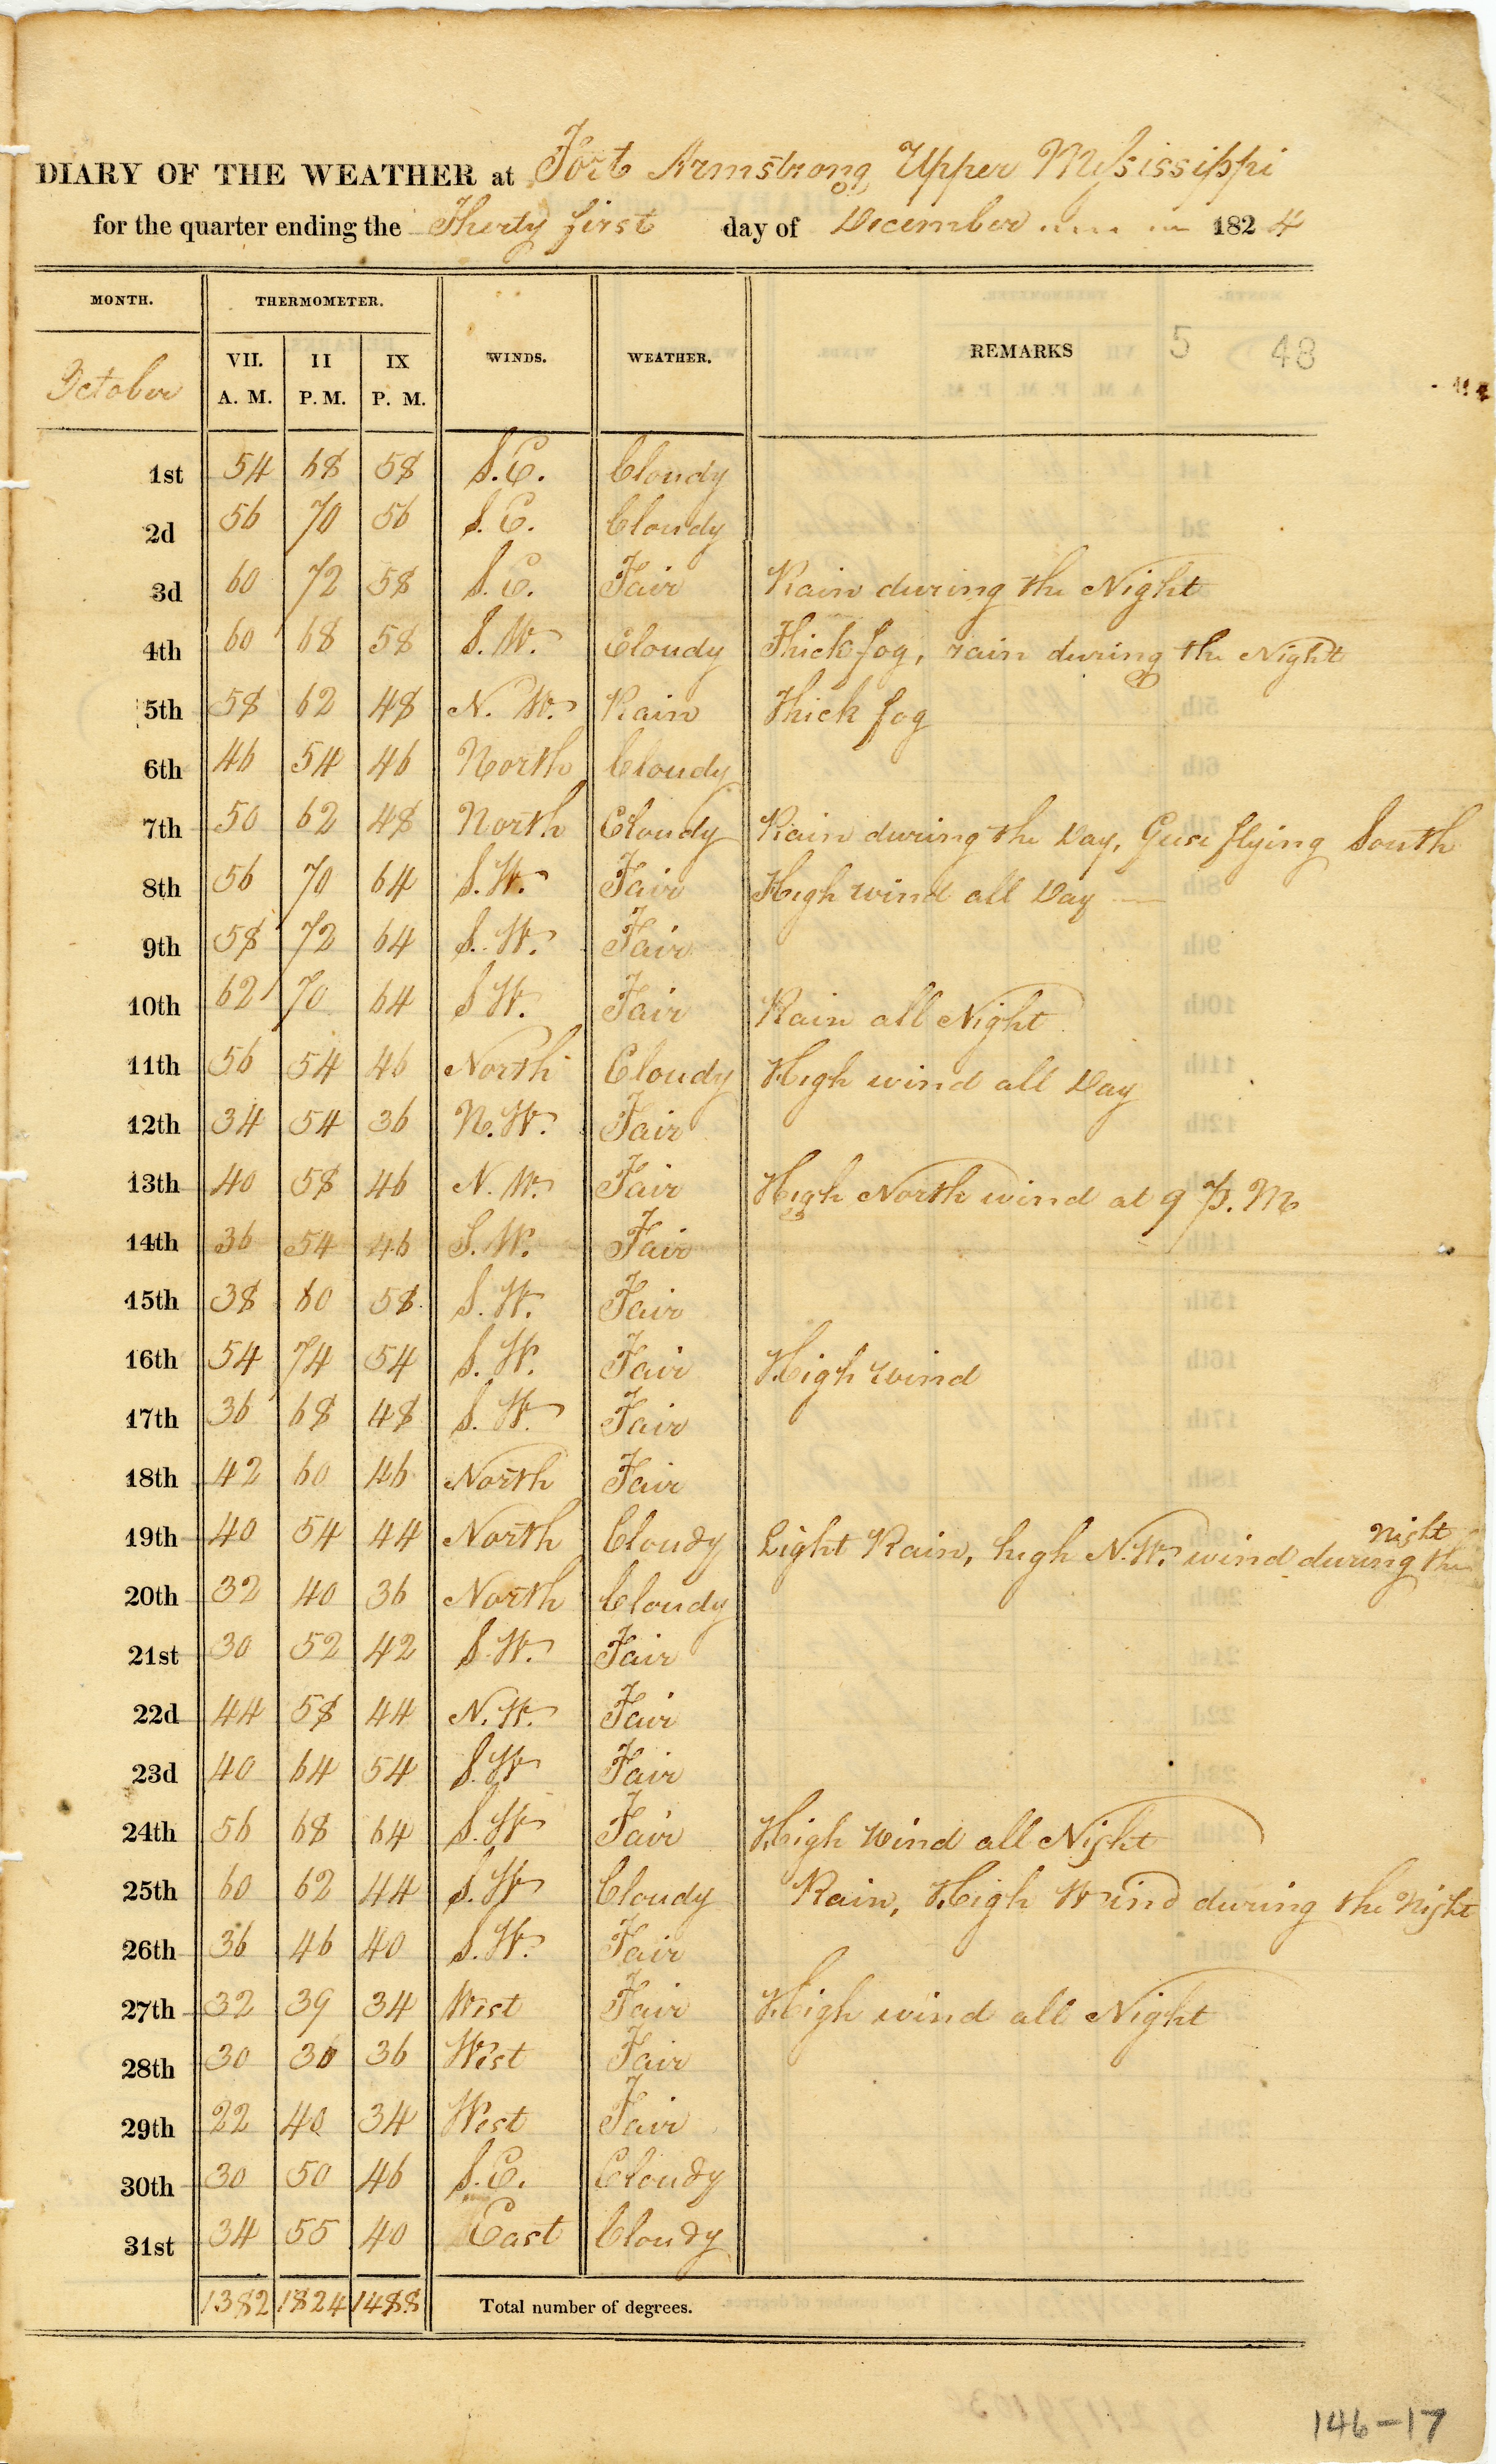 DIARY OF THE WEATHER at Fort Armstrong, Upper Mississippi
for the quarter ending the Therty first day of December 1824
MONTH. THERMOMETER. WINDS. WEATHER. REMARKS 5 48
October VII. A. M. II P. M. IX P. M.
1st 54 68 58 S.E. Cloudy
2d 56 70 56 S.E. Cloudy
3d 60 72 58 S.E. Fair Rain during the Night
4th 60 68 58 S.W. Cloudy Thick fog, rain during the Night
5th 58 62 48 N.W. Rain Thick fog
6th 46 54 46 North Cloudy
7th 50 62 48 North Cloudy Rain during the Day, Geese flying South
8th 56 70 64 S.W. Fair High wind all Day
9th 58 72 64 S.W. Fair
10th 62 70 64 S W. Fair Rain all Night
11th 56 54 46 North Cloudy High wind all Day
12th 34 54 36 N.W. Fair
13th 40 58 46 N.W. Fair High North wind at 9 P.M
14th 36 54 46 S.W. Fair
15th 38 60 58 S.W. Fair
16th 54 74 54 S.W. Fair High wind
17th 36 68 48 S.W. Fair
18th 42 60 46 North Fair
19th 40 54 44 North Cloudy Light Rain, high N.W. wind during the Night
20th 32 40 36 North Cloudy
21st 30 52 42 S.W. Fair
22d 44 58 44 N.W. Fair
23d 40 64 54 S.W Fair
24th 56 68 64 S.W Fair High Wind all Night
25th 60 62 44 S.W Cloudy Rain, High Wind during the Night
26th 36 46 40 S.W. Fair
27th 32 39 34 West Fair High wind all Night
28th 30 36 36 West Fair
29th 22 40 34 West Fair
30th 30 50 46 S.E. Cloudy
31st 34 55 40 East Cloudy
1382 1824 1488 Total number of degrees.
146-17